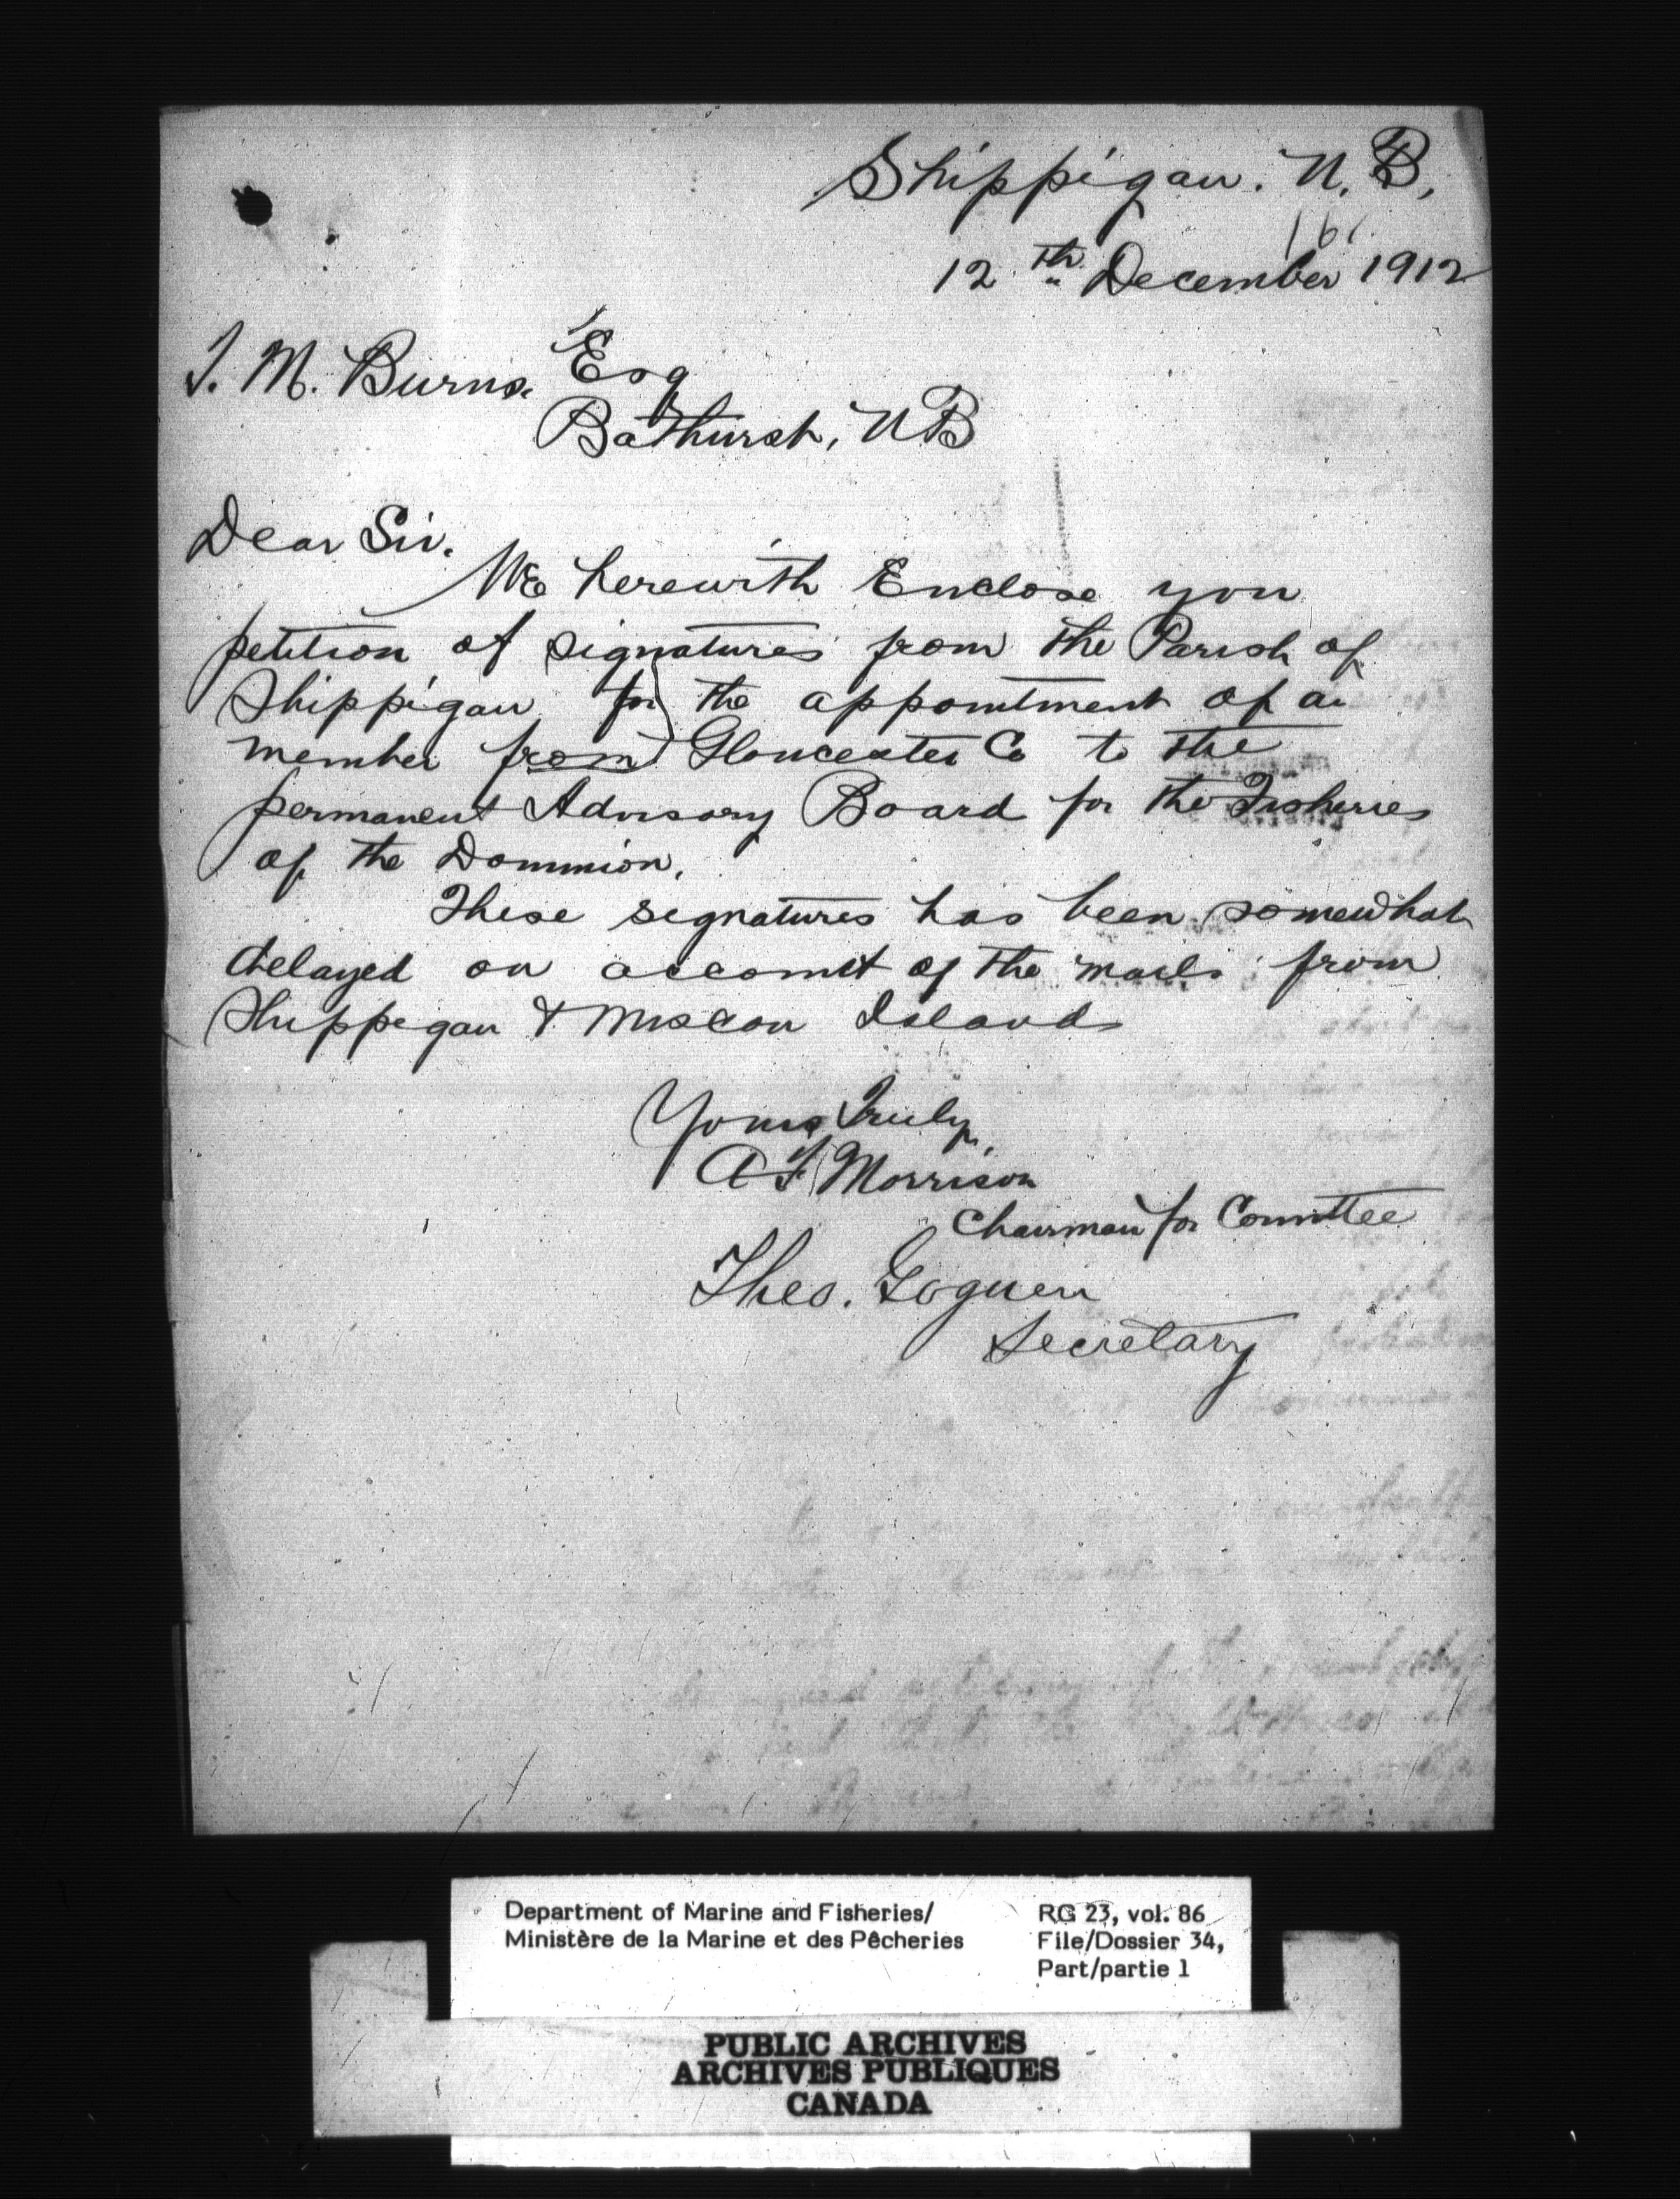 Shippigan. N. B,
161
12th December 1912
T. M. Burns. Esq
Bathurst, NB
Dear Sir.
We herewith Enclose you
petition of signatures from the Parish of
Shippigan for the appointment of a
member from Gloucester Co to the
permanent Advisory Board for the Fisheries
of the Dominion.
These signatures has been somewhat
delayed on account of the mails from
Shippegan & Miscou Islands
Yours Truly,
A F Morrison
Chairman for Committee
Theo. Goguen
Secretary
Department of Marine and Fisheries/
Ministère de la Marine et des Pêcheries
RG 23, vol. 86
File/Dossier 34,
Part/partie 1
PUBLIC ARCHIVES
ARCHIVES PUBLIQUES
CANADA